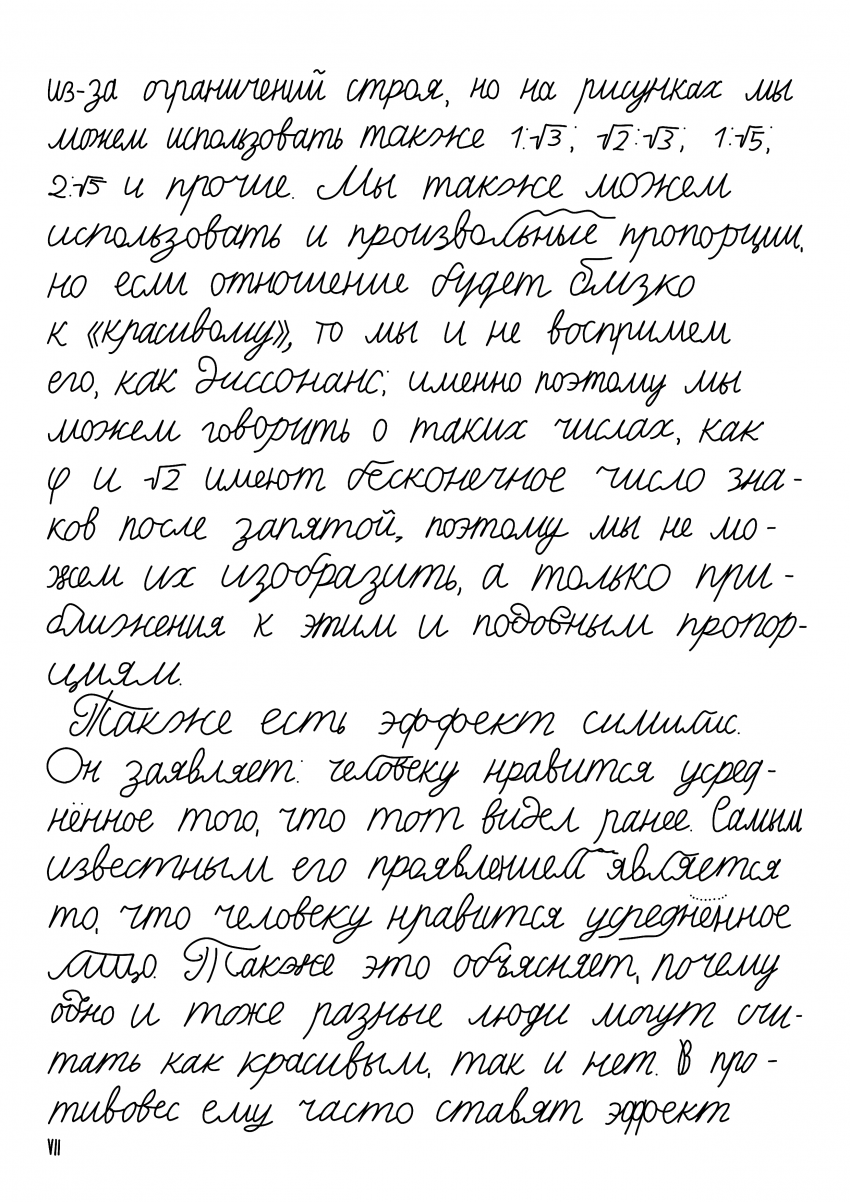 из-за ограничений строя, но на рисунках мы
можем использовать также 1:√3; √2:√3; 1:√5;
2:√5 и прочие. Мы также можем
использовать и произвольные пропорции,
но если отношение будет близко
к «красивому», то мы и не воспримем
его, как диссонанс; именно поэтому мы
можем говорить о таких числах, как
φ и √2 имеют бесконечное число зна-
ков после запятой, поэтому мы не мо-
жем их изобразить, а только при-
ближения к этим и подобным пропор-
циям.
Также есть эффект симилис.
Он заявляет: человеку нравится усред-
нённое того, что тот видел ранее. Самым
известным его проявлением является
то, что человеку нравится усреднённое
лицо. Также это объясняет, почему
одно и тоже разные люди могут счи-
тать как красивым, так и нет. В про-
тивовес ему часто ставят эффект
VII